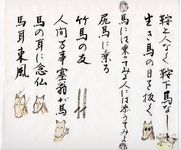 鞍上人なく 鞍下馬なし
生き馬の目を抜く
馬には乗ってみよ人には添うてみよ
尻馬に乗る
竹馬の友
人間万事塞翁が馬
馬の耳に念仏
馬耳東風